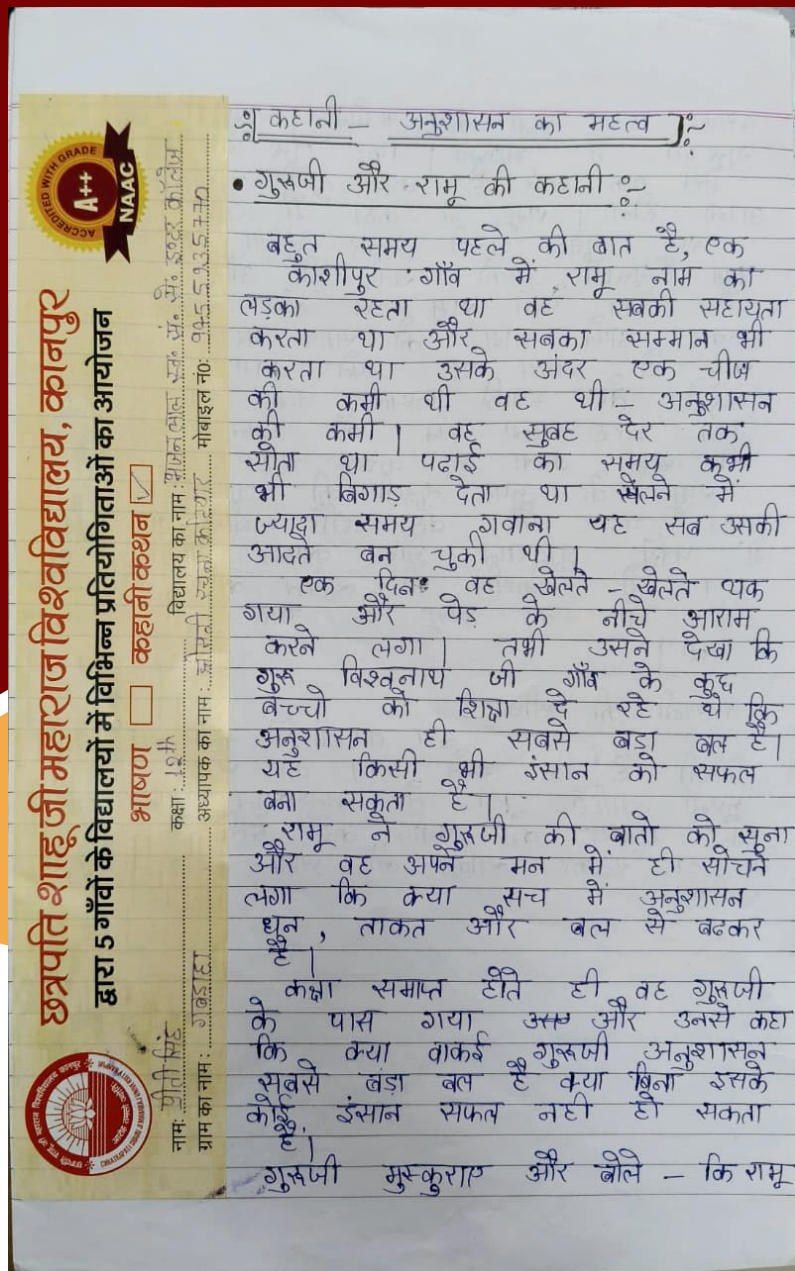 छत्रपति शाहू जी महाराज विश्वविद्यालय, कानपुर
द्वारा 5 गाँवों के विद्यालयों में विभिन्न प्रतियोगिताओं का आयोजन
भाषण कहानी कथन ✓
नाम: प्रीती सिंह कक्षा: 12th विद्यालय का नाम:
ग्राम का नाम: गबड़ाहा अध्यापक का नाम: श्रीमती रचना कटियार मोबाइल नं0:
ACCREDITED WITH GRADE
A++
NAAC
कहानी – अनुशासन का महत्व
• गुरूजी और रामू की कहानी :-
बहुत समय पहले की बात है, एक
काशीपुर गाँव में, रामू नाम का
लड़का रहता था वह सबकी सहायता
करता था और सबका सम्मान भी
करता था उसके अंदर एक चीज
की कमी थी वह थी – अनुशासन
की कमी | वह सुबह देर तक
सोता था पढाई का समय कभी
भी बिगाड़ देता था खेलने में
ज्यादा समय गवाना यह सब उसकी
आदते बन चुकी थी |
एक दिन वह खेलते – खेलते थक
गया और पेड़ के नीचे आराम
करने लगा | तभी उसने देखा कि
गुरू विश्वनाथ जी गाँव के कुछ
बच्चो को शिक्षा दे रहे थे कि
अनुशासन ही सबसे बडा बल है |
यह किसी भी इंसान को सफल
बना सकता है |
रामू ने गुरूजी की बातो को सुना
और वह अपने मन में ही सोचने
लगा कि क्या सच में अनुशासन
धन, ताकत और बल से बढकर
है |
कक्षा समाप्त होते ही वह गुरूजी
के पास गया और उनसे कहा
कि क्या वाकई गुरूजी अनुशासन
सबसे बड़ा बल है क्या बिना इसके
कोई इंसान सफल नही हो सकता
है |
गुरूजी मुस्कुराए और बोले – कि रामू